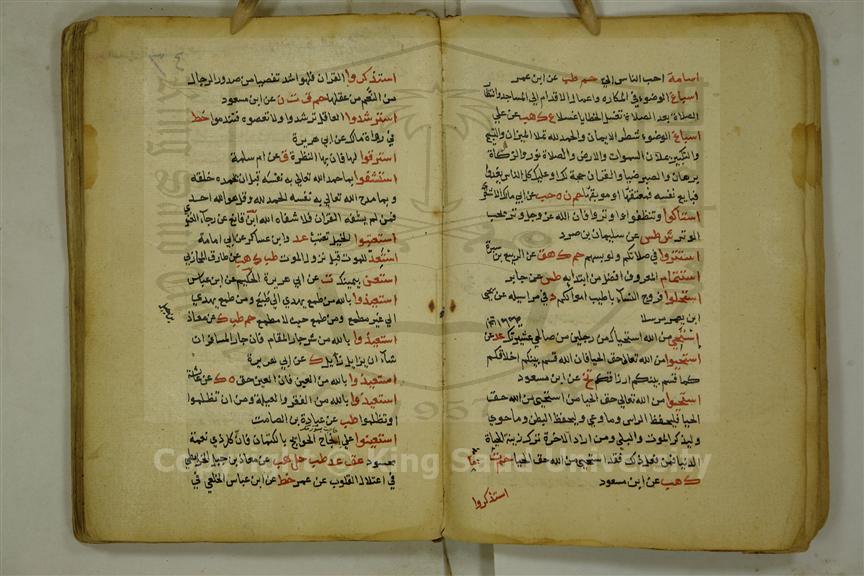 اسامة احب الناس الي حم طب عن ابن عمر
اسباغ الوضوء في المكاره واعمال الاقدام الي المساجد وانتظار
الصلاة بعد الصلاة تغسل الخطايا غسلا ع ك هب عن علي
اسباغ الوضوء شطر الايمان والحمد لله تملا الميزان والتسبيح
والتكبير يملان السموات والارض والصلاة نور والزكاة
برهان والصبر ضيا والقران حجة لك او عليك كل الناس يغدو
فبايع نفسه فمعتقها او موبقها حم ن ه حب عن ابي مالك الاشعري
استاكوا وتنظفوا واوتروا فان الله عز وجل وتر يحب
الوتر ش طس عن سليمان بن صرد
استتروا في صلاتكم ولو بسهم حم ك هق عن الربيع بن سبرة
استتمام المعروف افضل من ابتدايه طس عن جابر
استحلوا فروج النسا باطيب اموالكم د في مراسيله عن يحيي
ابن يعمر مرسلا
استحي من الله استحياك من رجلين من صالحي عشيرتك عد عن
استحيوا من الله تعالى حق الحيا فان الله قسم بينكم اخلاقكم
كما قسم بينكم ارزاقكم تخ عن ابن مسعود
استحيوا من الله تعالي حق الحيا من استحيى من الله حق
الحيا فليحفظ الراس وما وعي وليحفظ البطن وما حوي
وليذكر الموت والبلي ومن اراد الاخرة ترك زينة الحياة
الدنيا فمن فعل ذلك فقد استحيي من الله حق الحيا حم ت
ك هب عن ابن مسعود
استذكروا
استذكروا القران فلهو اشد تفصيا من صدور الرجال
من النعم من عقلها حم ق ت ن عن ابن مسعود
استرشدوا العاقل ترشدوا ولا تعصوه فتندموا خط
في رواة مالك عن ابي هريرة
استرقوا لها فان بها النظرة ق عن ام سلمة
استشفوا بما حمد الله تعالي به نفسه قبل ان يحمده خلقه
وبما مدح الله تعالي به نفسه الحمد لله وقل هو الله احد
فمن لم يشفه القران فلا شفاه الله ابن قانع عن رجاء الغنوي
استعتبوا الخيل تعتب عد وابن عساكر عن ابي امامة
استعد للموت قبل نزول الموت طب ك هب عن طارق المحاربي
استعن بيمينك ت عن ابي هريرة الحكيم عن ابن عباس
استعيذوا بالله من طمع يهدي الي طبع ومن طمع يهدي
الي غير مطمع ومن طمع حيث لا مطمع حم طب ك عن معاذ
استعيذوا بالله من شر جار المقام فان جار المسافر ان
شا ان يزايل زايل ك عن ابي هريرة
استعيذوا بالله من العين فان العين حق ه ك عن عائشة
استعيذوا بالله من الفقر والعيلة ومن ان تظلموا
او تظلموا طب عن عبادة بن الصامت
استعينوا علي انجاح الحوايج بالكتمان فان كل ذي نعمة
محسود عق عد طب حل هب عن معاذ بن جبل الخرايطي
في اعتلال القلوب عن عمر خط عن ابن عباس الخلعي في
Copyright © King Saud University
1957